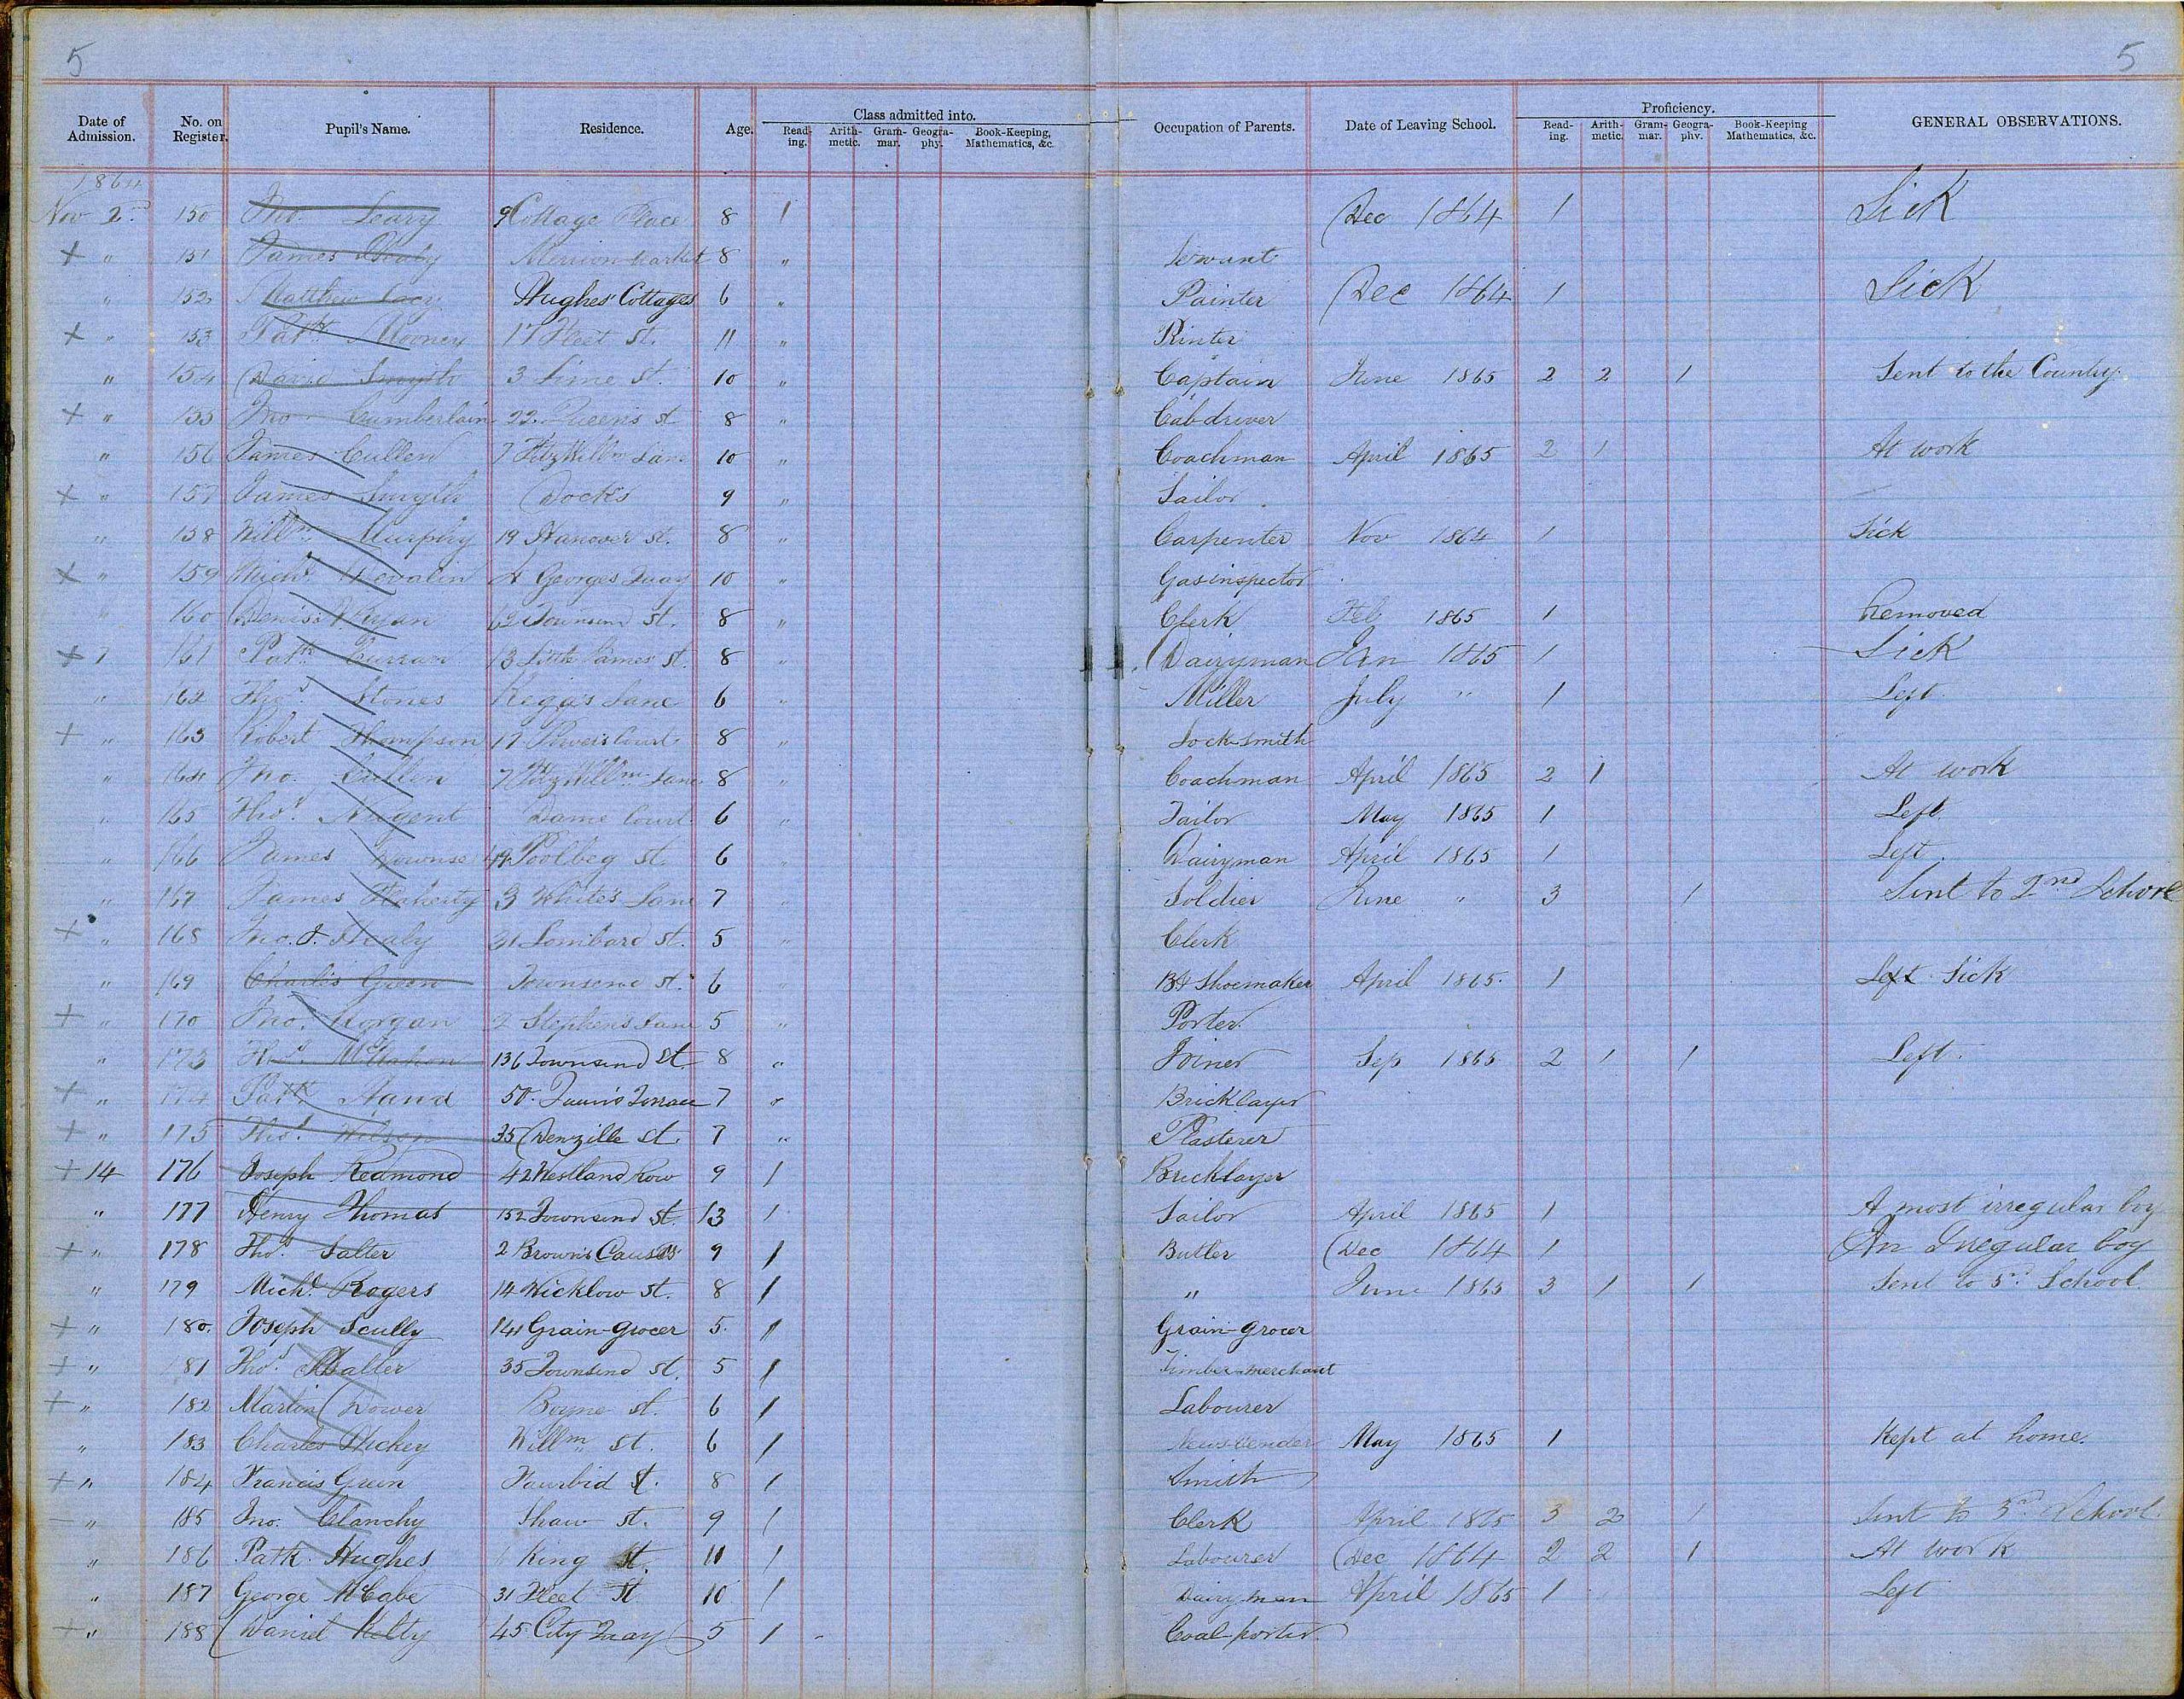 5 5
Date of Admission. No. on Register. Pupil's Name. Residence. Age. Class admitted into. Read-ing. Arith-metic. Gram-mar. Geogra-phy. Book-Keeping, Mathematics, &c. Occupation of Parents. Date of Leaving School. Proficiency. Read-ing. Arith-metic. Gram-mar. Geogra-phy. Book-Keeping Mathematics, &c. GENERAL OBSERVATIONS.
1864
Nov 2nd 150 Jno. Leary 9 Cottage Place 8 1 Dec 1864 1 Sick
+ " 151 James Healy Merrion market 8 " Servant
" 152 Matthew Lacy Hughes' Cottages 6 " Painter Dec 1864 1 Sick
+ " 153 Patk Mooney 17 Fleet St. 11 " Printer
" 154 David Smyth 3 Lime St. 10 " Captain June 1865 2 2 1 Sent to the Country.
+ " 155 Jno Cumberlain 22 Queen's St 8 " Cabdriver
" 156 James Cullen 7 FitzWillm Lane 10 " Coachman April 1865 2 1 At work
+ " 157 James Smyth Docks 9 " Sailor
" 158 Willm Murphy 19 Hanover St. 8 " Carpenter Nov 1864 1 Sick
+ " 159 Michl 4 Georges Quay 10 " Gas inspector
" 160 Denis Ryan 62 Townsend St. 8 " Clerk Feb 1865 1 Removed
+ 7 161 Patk Curran 13 Little James St. 8 " Dairyman Jan 1865 1 Sick
" 162 Thos Stones Kegg's Lane 6 " Miller July " 1 Left
+ " 163 Robert Thompson 17 Power's Court 8 " Lock-smith
" 164 Jno. Cullen 7 FitzWillm Lane 8 " Coachman April 1865 2 1 At work
" 165 Thos Nugent Dame Court 6 " Tailor May 1865 1 Left.
" 166 James 49 Poolbeg St. 6 " Dairyman April 1865 1 Left.
" 167 James Flaherty 3 White's Lane 7 " Soldier June " 3 1 Sent to 2nd School
+ " 168 Jno. J. Healy 31 Lombard St. 5 " Clerk
" 169 Charles Green Townsend St. 6 " Bt Shoemaker April 1865. 1 Left Sick
+ " 170 Jno. Horgan 2 Stephen's Lane 5 " Porter
" 173 Thos McMahon 136 Townsend St. 8 " Joiner Sep 1865 2 1 1 Left.
+ " 174 Patk Hand 50 Terrace 7 " Bricklayer
+ " 175 Thos Wilson 35 Denzille St. 7 " Plasterer
+ 14 176 Joseph Redmond 42 Westland Row 9 1 Bricklayer
" 177 Henry Thomas 152 Townsend St. 13 1 Sailor April 1865 1 A most irregular boy
+ " 178 Thos Salter 2 Brown's 9 1 Butler Dec 1864 1 An Irregular boy
" 179 Michl Rogers 14 Wicklow St. 8 1 " June 1865 3 1 1 Sent to 3rd School
+ " 180. Joseph Scully 141 Grain-grocer 5. 1 Grain-grocer
+ " 181 Thos Salter 35 Townsend St. 5 1 Timber-merchant
+ " 182 Martin Dower Boyne St. 6 1 Labourer
" 183 Charles Hickey Willm St. 6 1 News-vender May 1865 1 Kept at home.
+ " 184 Francis Green St. 8 1 Smith
" 185 Jno. Clanchy Shaw St. 9 1 Clerk April 1865 3 2 1 Sent to 3rd School.
" 186 Patk. Hughes 6 King St. 11 1 Labourer Dec 1864 2 2 1 At work
" 187 George McCabe 31 Fleet St 10 1 Dairyman April 1865 1 Left
+ " 188 Daniel Kelty 45 City Quay 5 1 Coal-porter